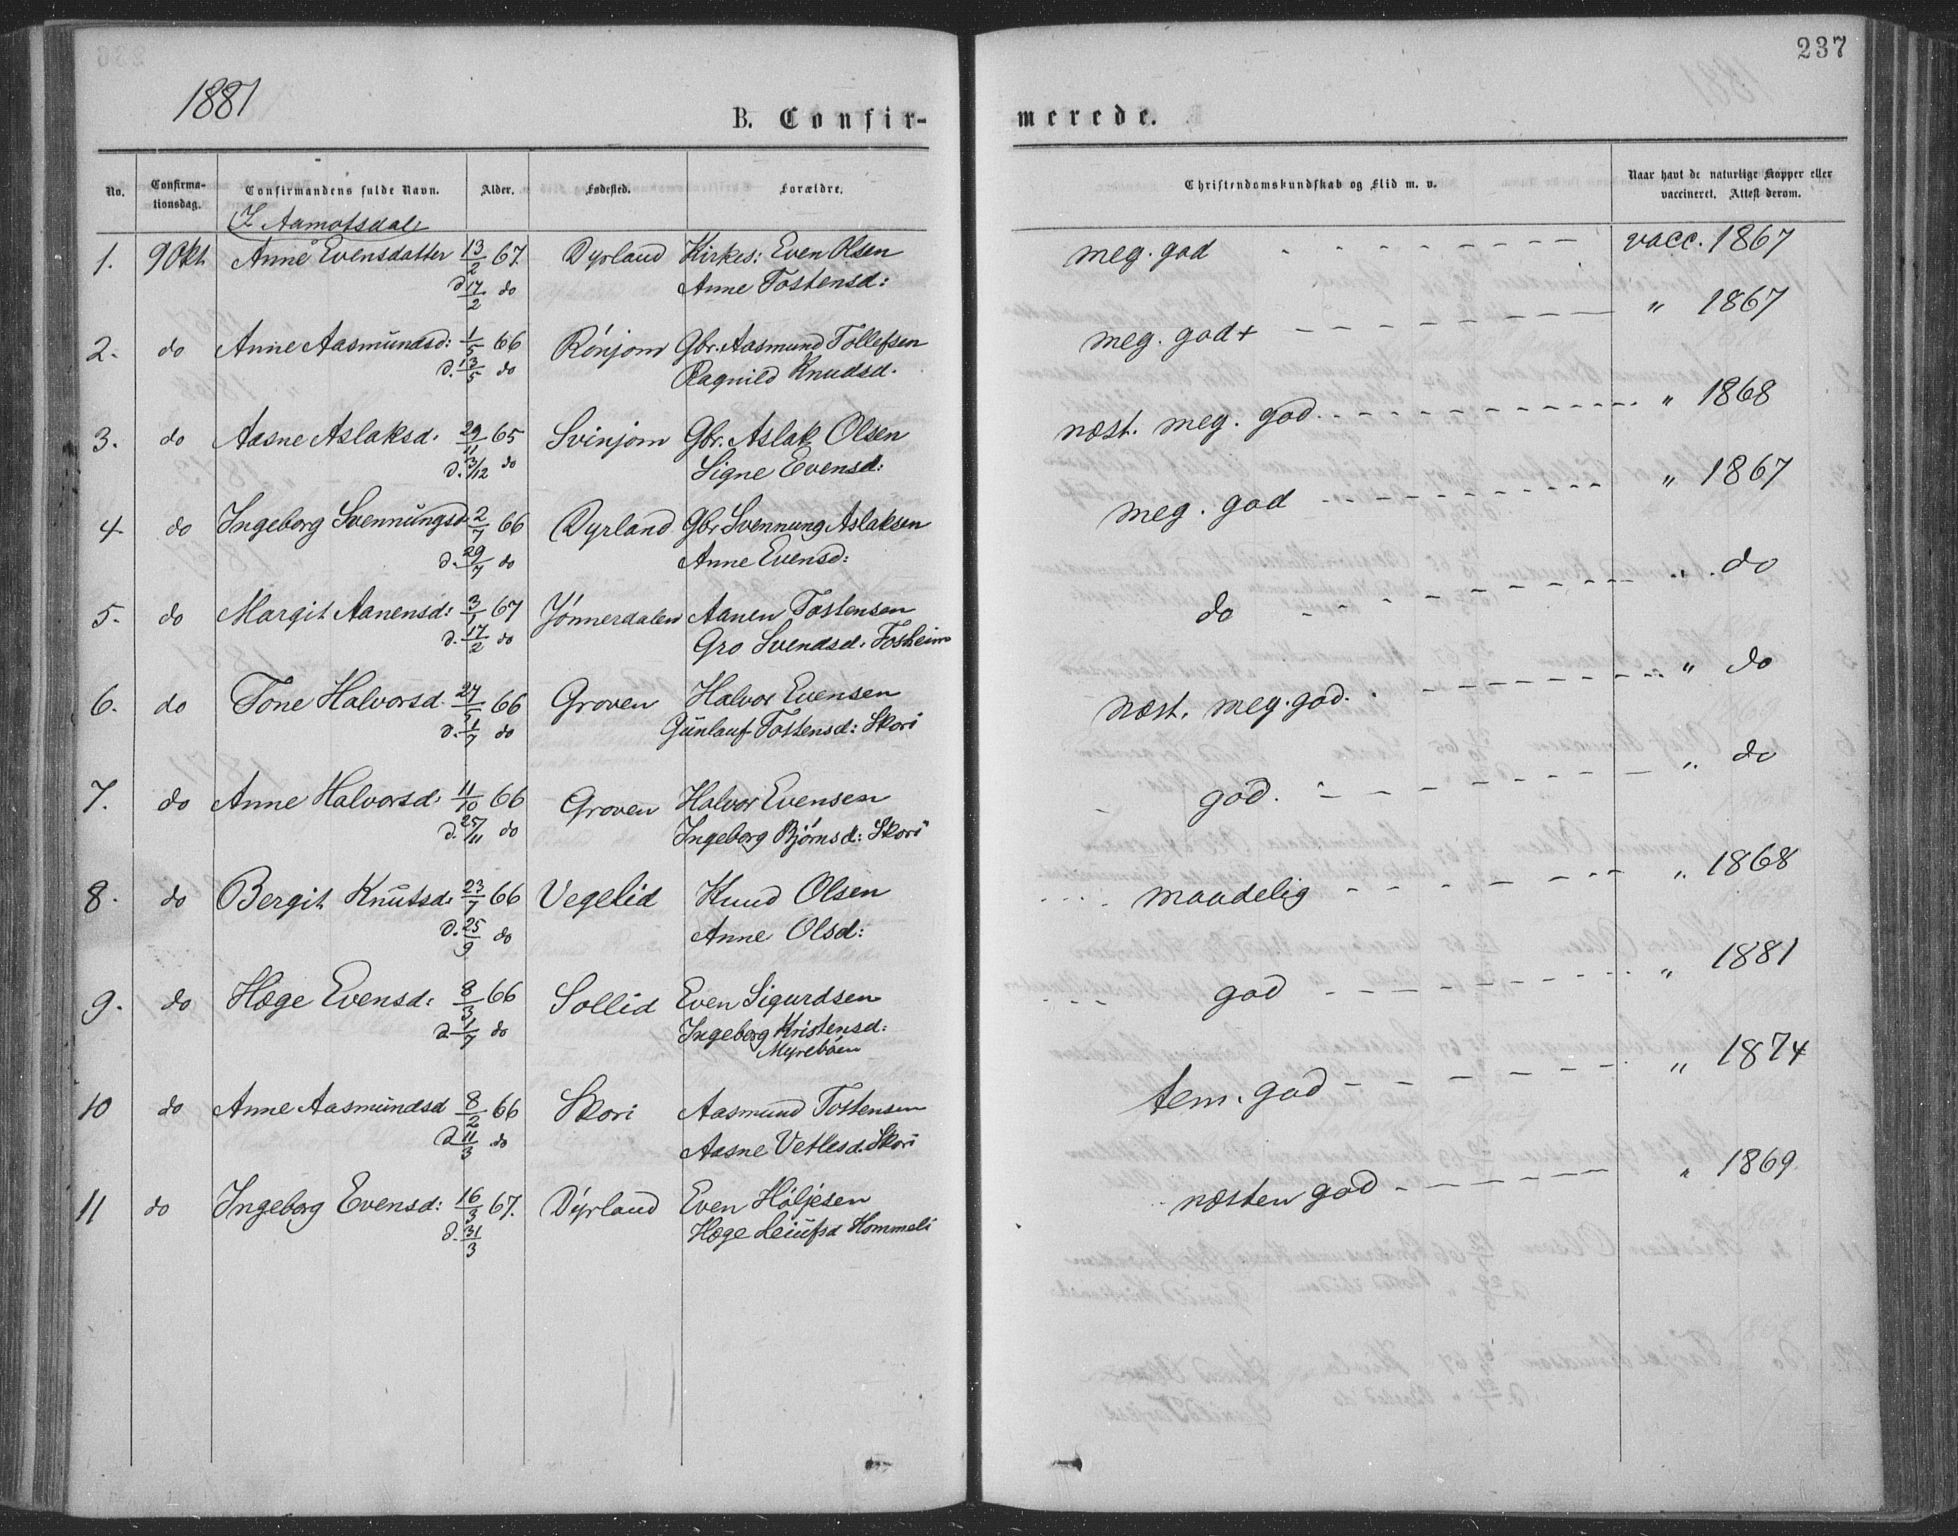 237
1881
B. Confirmerede.
No. Confirmationsdag. Confirmandens fulde Navn. Alder. Fødested. Forældre. Christendomskundskab og Flid m. v. Naar havt de naturlige Kopper eller vaccineret. Attest derom.
I Aamotsdal
1. 9 Okt Anne Evensdatter 13/2 67. Dyrland Kirkes: Even Olsen meg. god vacc. 1867
d 17/2 do Anne Tostensd:
2. do Anne Aasmundsd: 1/5 66 Rönjom Gbr. Aasmund Tollefsen meg. god+ " 1867
d. 13/5 do Ragnild Knudsd.
3. do Aasne Aslaksd. 29/11 65 Svinjom Gbr. Aslak Olsen næst. meg. god. " 1868
d. 3/12 do Signe Evensd:
4. do Ingeborg Svennungsd. 2/7 66 Dyrland Gbr Svennung Aslaksen meg. god " 1867
d. 29/7 do Anne Evensd:
5. do Margit Aanensd: 3/1 67 Jönnerdalen Aanen Tostensen do " do
d. 17/2 do Gro Svendsd. Fosheim
6. do Tone Halvorsd. 27/5 66 Groven Halvor Evensen næst. meg. god. " do
d. 1/7 do Gunlauf Tostensd: Skori
7. do Anne Halvorsd. 11/10 66 Groven Halvor Evensen god. " do
d. 25/11 do Ingeborg Björnsd: Skori
8. do Bergit Knutsd. 23/7 66 Vegelid Knud Olsen maadelig " 1868
d. 25/9 do Anne Olsd:
9. do Hæge Evensd: 8/3 66 Sollid Even Sigurdsen god " 1881
d. 1/7 do Ingeborg Kristensd:
Myreböen
10 do Anne Aasmundsd 8/2 66 Skori Aasmund Tostensen tem. god " 1874
d 11/3 do Aasne Vetlesd. Skori
11 do Ingeborg Evensd: 16/3 67. Dyrland Even Höljesen næsten god " 1869.
d. 31/3 Hæge Leiufsd Hommeli